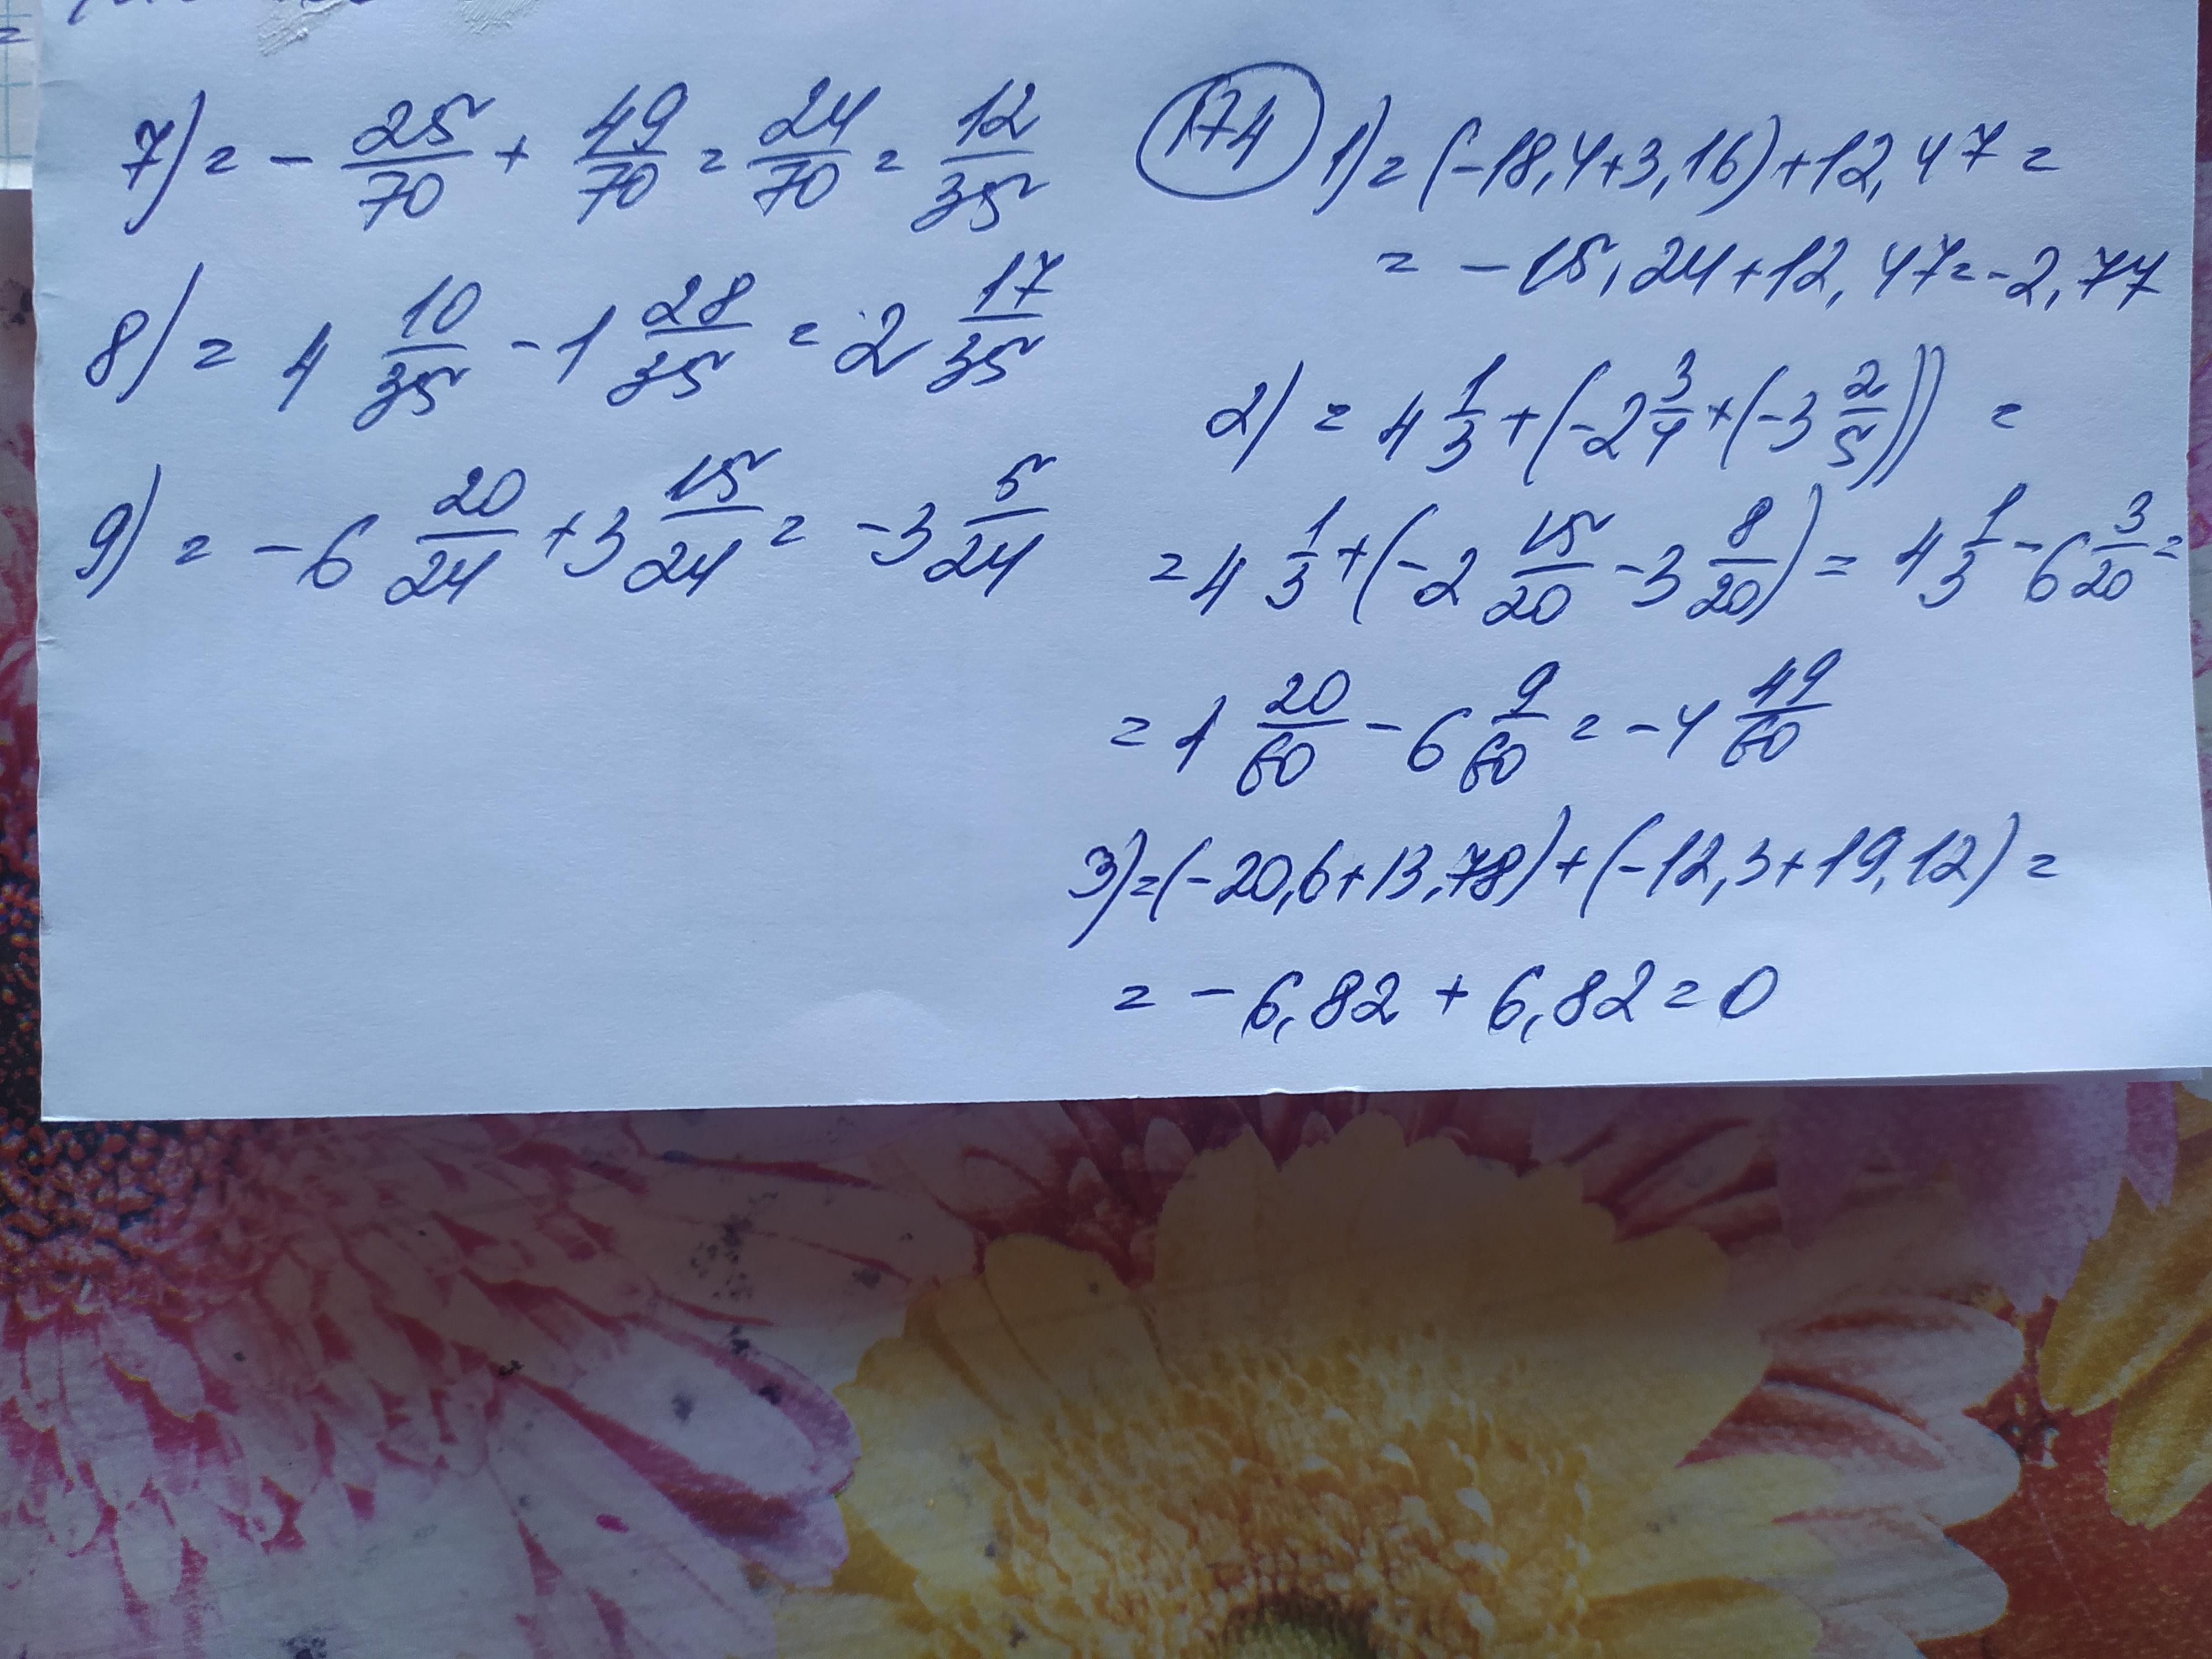 7) = - 25/70 + 49/70 = 24/70 = 12/35
8) = 4 10/35 - 1 28/35 = 2 17/35
9) = - 6 20/24 + 3 15/24 = - 3 5/24
174 1) = (-18,4+3,16)+12,47 =
= - 15,24+12,47=-2,77
2) = 4 1/3 + (-2 3/4 + (-3 2/5)) =
= 4 1/3 + (-2 15/20 - 3 8/20) = 4 1/3 - 6 3/20 =
= 1 20/60 - 6 9/60 = - 4 49/60
3) = (-20,6+13,78)+(-12,3+19,12) =
= - 6,82 + 6,82 = 0